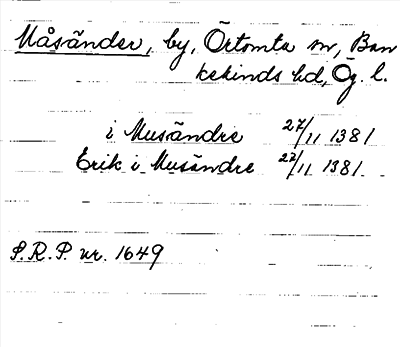 Måsänder, by, Örtomta sn, Ban
kekinds hd, Ög. l.
i Musändre 27/11 1381
Erik i Musändre 27/11 1381
S.R.P. nr. 1649